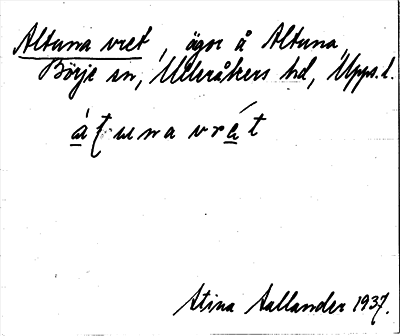 Altuna vret, ägor å Altuna,
Börje sn, Ulleråkers hd, Upps. l.
átuna vrét
Stina Aallander 1937.